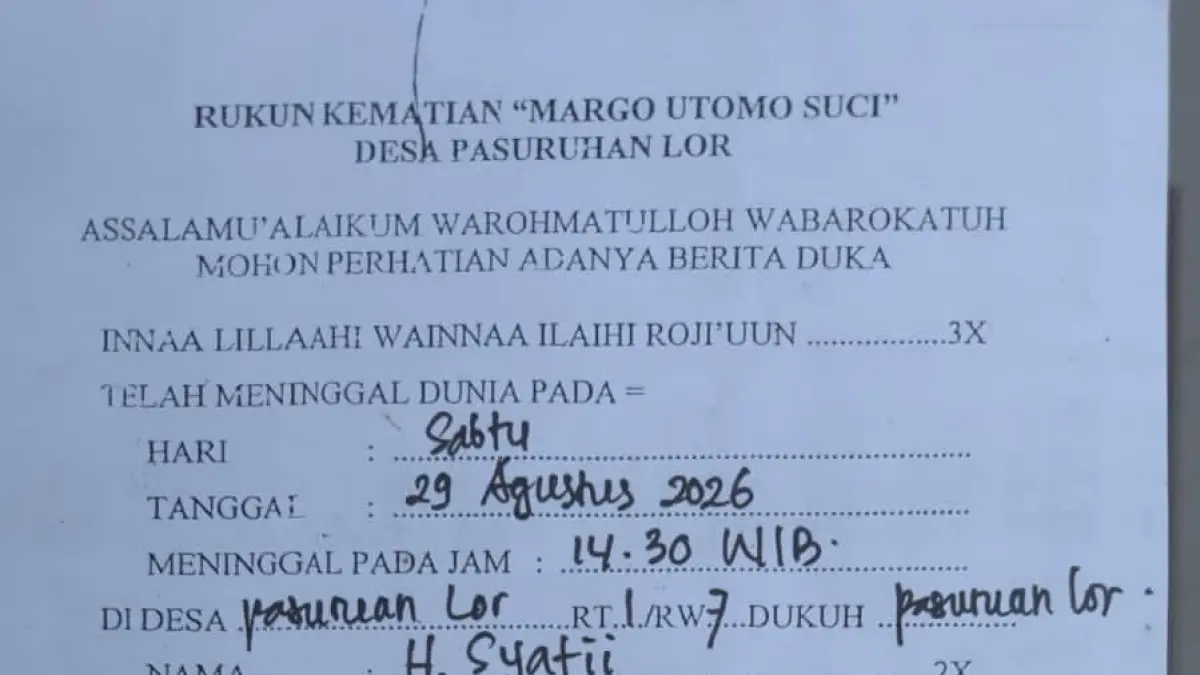 RUKUN KEMATIAN “MARGO UTOMO SUCI”
DESA PASURUHAN LOR
ASSALAMU’ALAIKUM WAROHMATULLOH WABAROKATUH
MOHON PERHATIAN ADANYA BERITA DUKA
INNAA LILLAAHI WAINNAA ILAIHI ROJI’UUN .................3X
TELAH MENINGGAL DUNIA PADA =
HARI : Sabtu
TANGGAL : 29 Agustus 2026
MENINGGAL PADA JAM : 14.30 WIB.
DI DESA pasuruan Lor RT.1/RW.7 DUKUH pasuruan lor.
NAMA : H. Syafii 2X